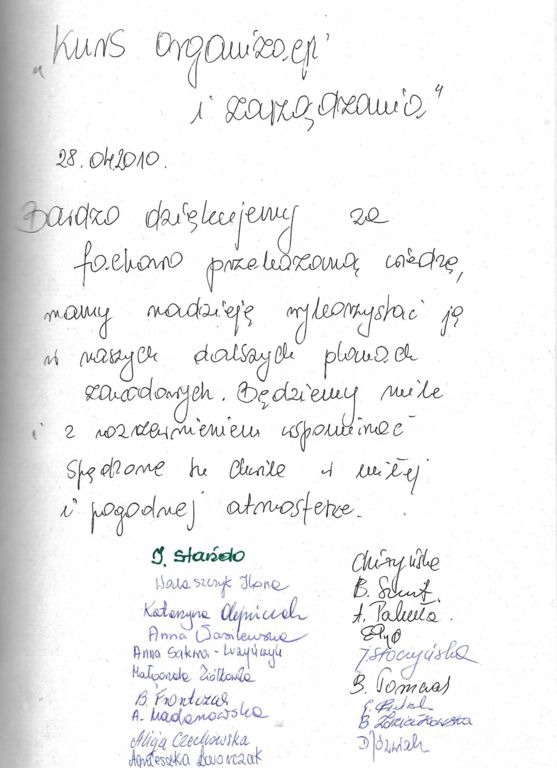 „Kurs organizacji
i zarządzania"
28.04.2010.
Bardzo dziękujemy za
fachowo przekazaną wiedzę,
mamy nadzieję wykorzystać ją
w naszych dalszych planach
zawodowych. Będziemy mile
i z rozrzewnieniem wspominać
spędzone tu chwile w miłej
i pogodnej atmosferze.
J. Stańdo
Walaszczyk Ilona
Katarzyna Olejniczak
Anna Wasilewska
Anna Sakwa-
Małgorzata Ziółkowska
B. Frontczak
A. Madanowska
Alicja Czechowska
Agnieszka Dworczak
B.
A.
J. Stoczyńska
B. Tomczas
B.
D. Jóźwiak